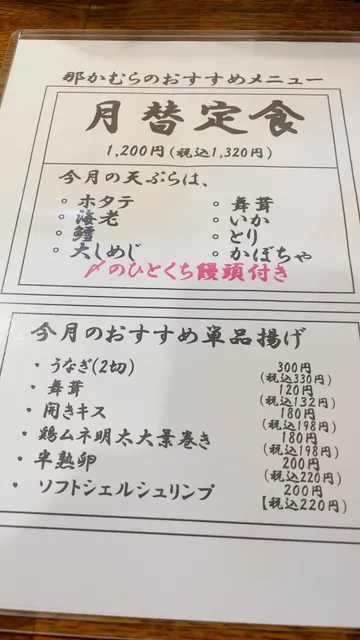 那かむらのおすすめメニュー
月替定食
1,200円(税込1,320円)
今月の天ぷらは、
。ホタテ
。舞茸
。海老
。いか
。鱈
。とり
。大しめじ
。かぼちゃ
〆のひとくち饅頭付き
今月のおすすめ単品揚げ
・うなぎ(2切)
300円
(税込330円)
・舞茸
120円
(税込132円)
・開きキス
180円
(税込198円)
・鶏ムネ明太大葉巻き
180円
(税込198円)
・半熟卵
200円
(税込220円)
・ソフトシェルシュリンプ
200円
【税込220円)